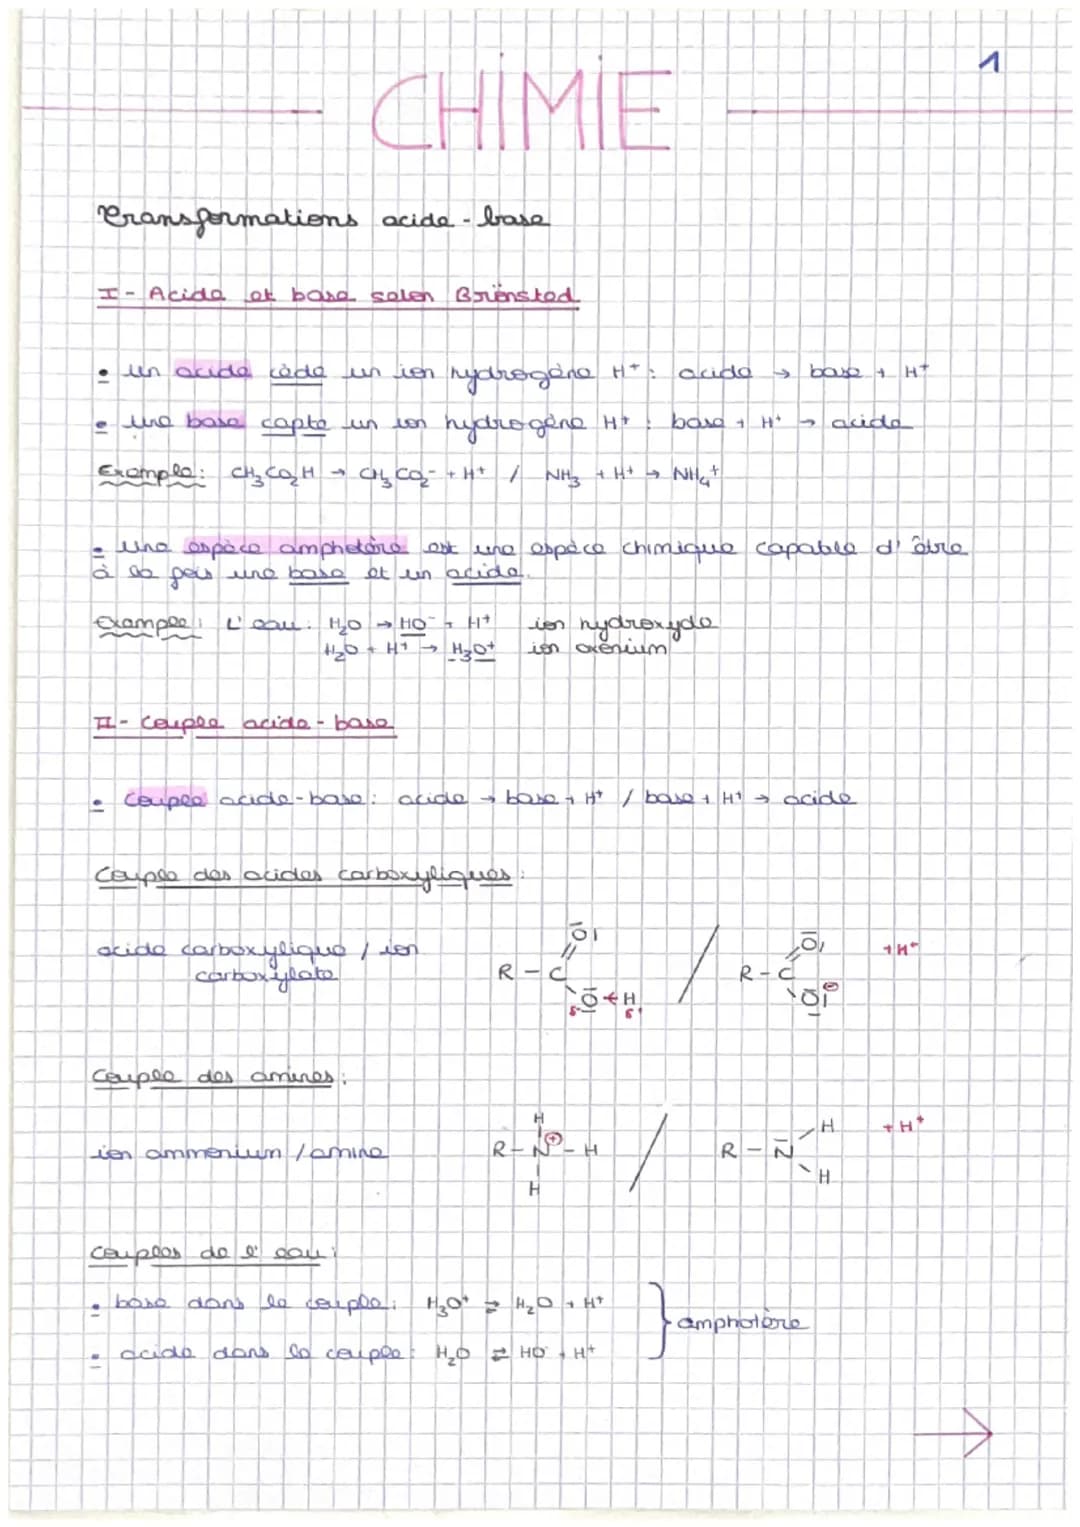 1
CHIMIE
Transformations acide-base
I- Acide et base selon Brönsted
• un acide cède un ion hydrogène H⁺ : acide → base + H⁺
• une base capte un ion hydrogène H⁺ : base + H⁺ → acide
Exemple : CH₃CO₂H → CH₃CO₂⁻ + H⁺ / NH₃ + H⁺ → NH₄⁺
• une espèce amphotère est une espèce chimique capable d'être
à la fois une base et un acide.
Exemple : L'eau : H₂O → HO⁻ + H⁺ ion hydroxyde
H₂O + H⁺ → H₃O⁺ ion oxonium
II- Couple acide-base
• Couple acide-base : acide → base + H⁺ / base + H⁺ → acide
Couple des acides carboxyliques :
acide carboxylique / ion
carboxylate
R - C O O H δ- δ+ / R - C O O ⊖ + H⁺
Couple des amines :
ion ammonium / amine
R - N⊕ - H H H / R - N H H + H⁺
Couples de l'eau :
• base dans le couple : H₃O⁺ ⇄ H₂O + H⁺
amphotère
• acide dans le couple : H₂O ⇄ HO⁻ + H⁺